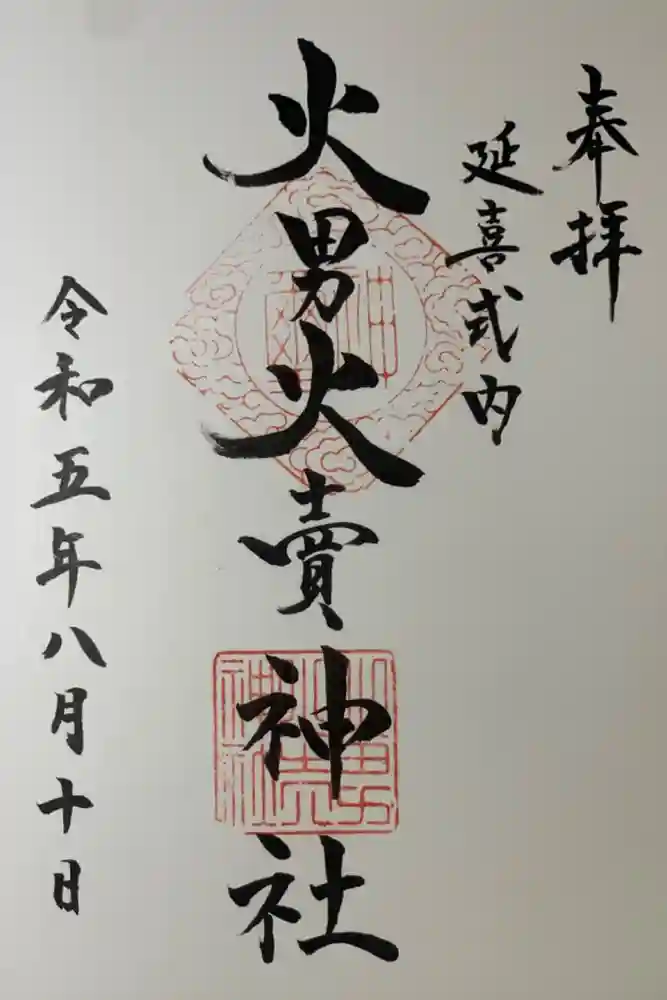 奉拝
延喜式内
火男火賣神社
令和五年八月十日